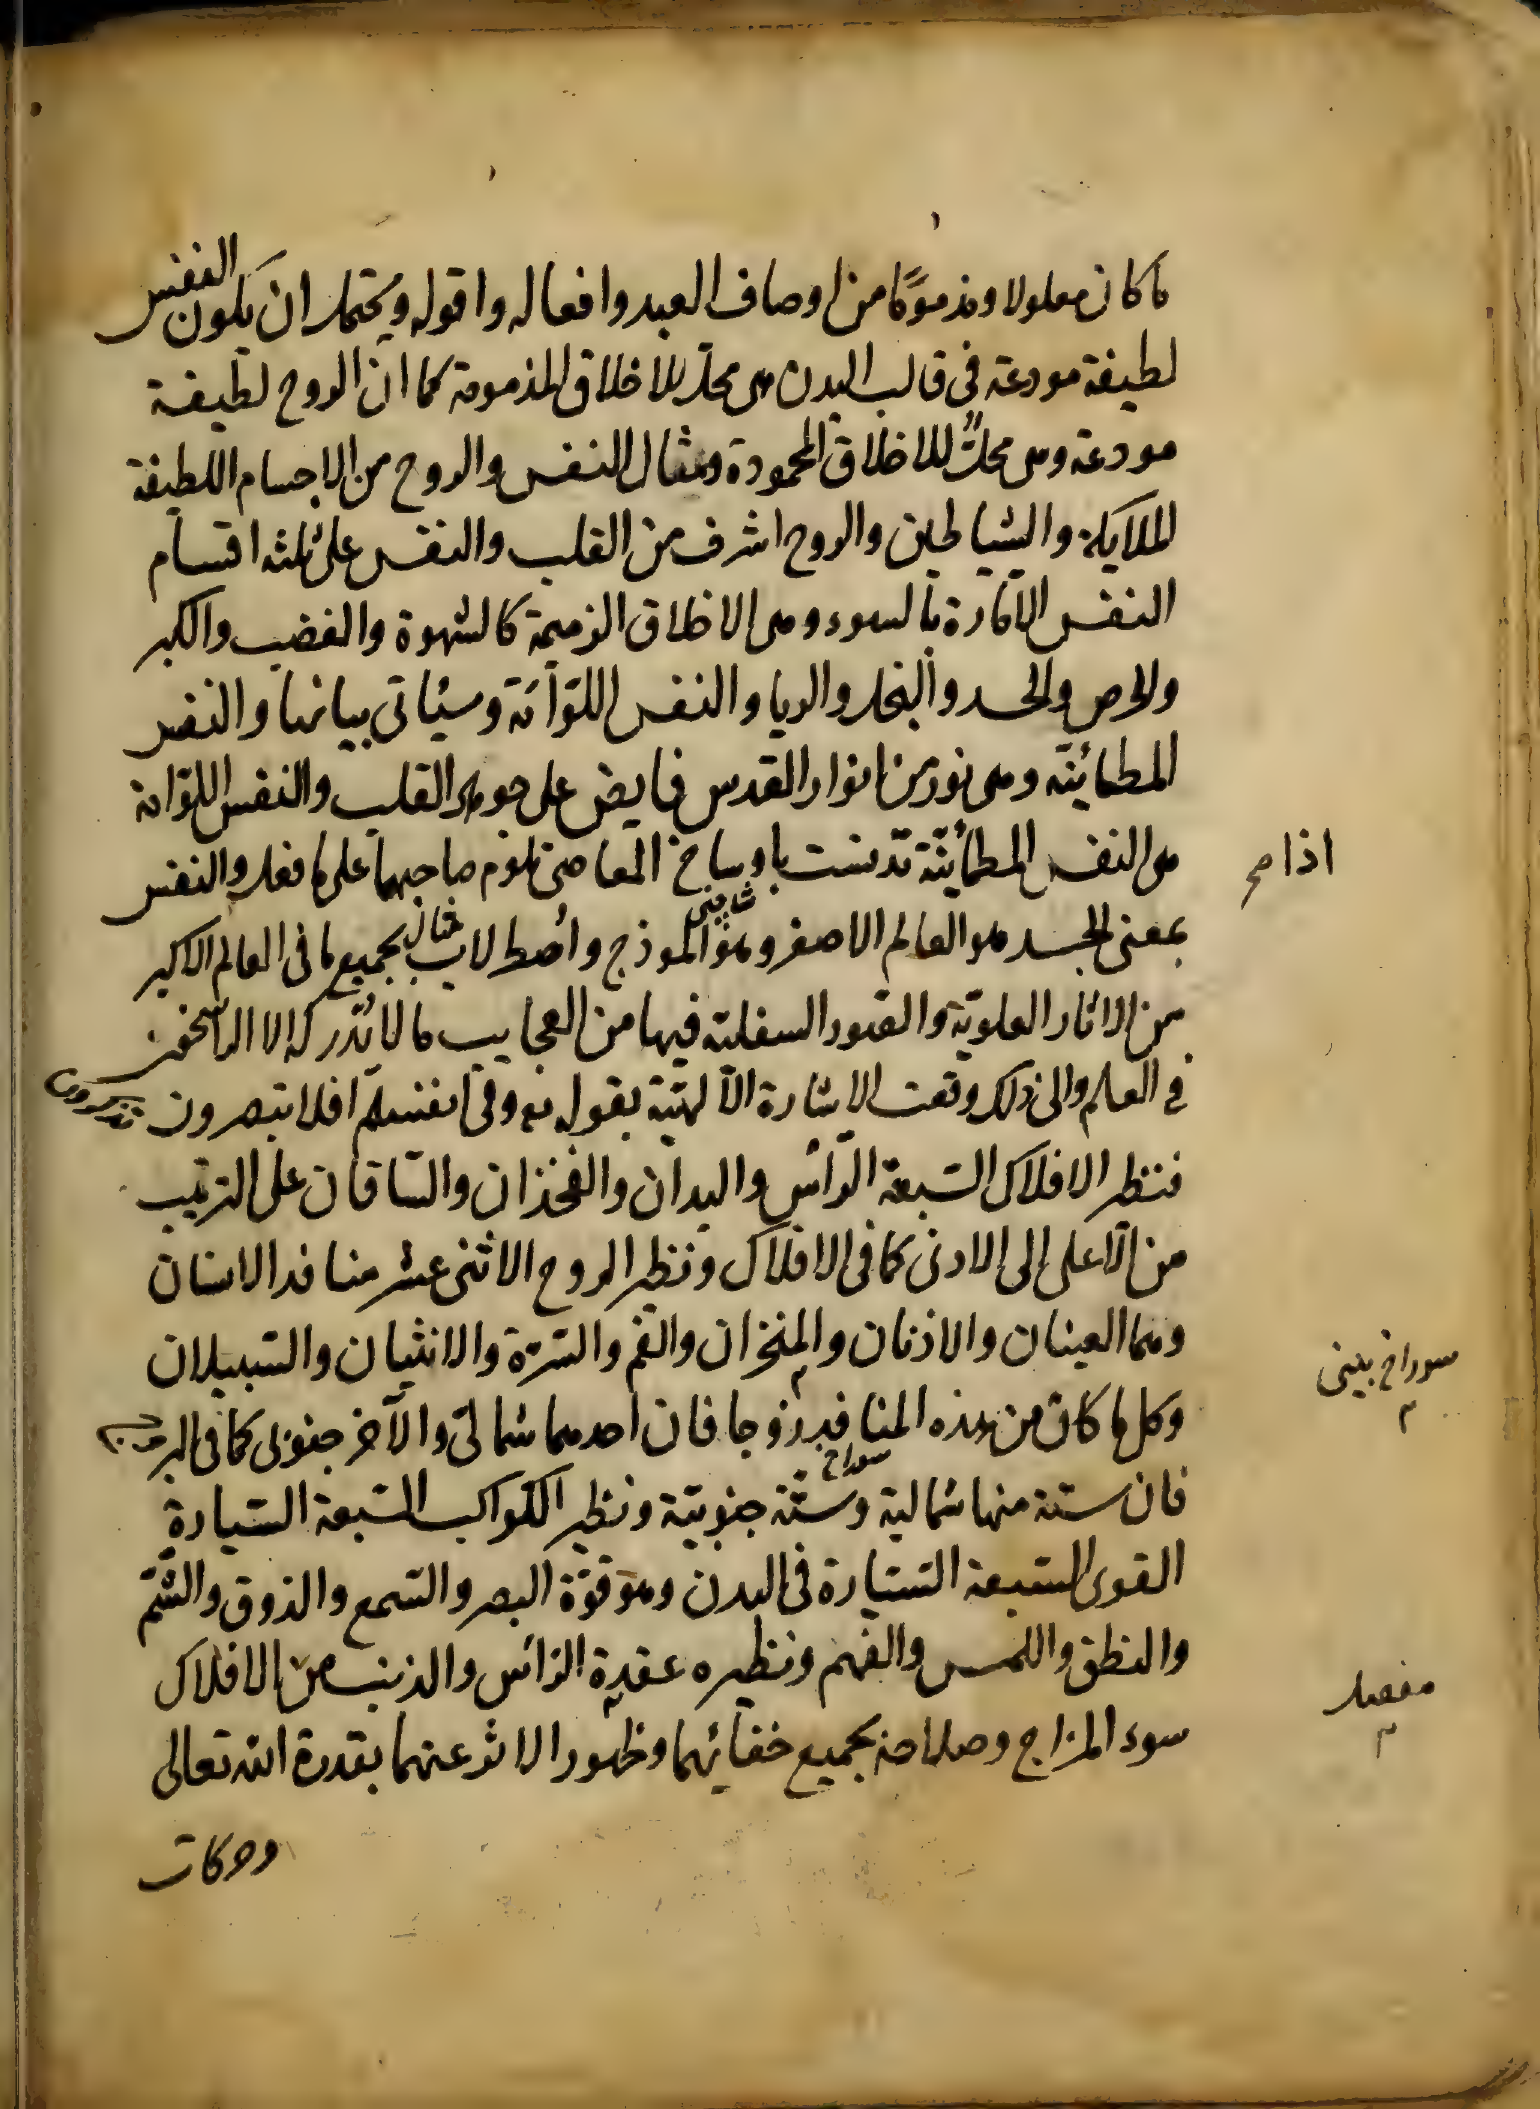 ما كان معلولا ومذموما من اوصاف العبد وافعاله واقوله ويحتمل ان يكون النفس
لطيفة مودعة فى قالب البدن هى محل للاخلاق المذمومة كما ان الروح لطيفة
مودعة وهى محلٌّ للاخلاق المحمودة ومثال النفس والروح من الاجسام اللطيفة
الملايكة والشياطين والروح اشرف من القلب والنفس على ثلثه اقسام
النفس الامّارة بالسوء وهى الاخلاق الذميمة كالشهوة والغضب والكبر
والحرص والحسد والبخل والريا والنفس اللوّامة وسيأتى بيانها والنفس
المطمائينّة وهى نور من انوار القدس فايض على جوهر القلب والنفس اللوّامة
هى النفس المطمأئينّة تدنست باوساخ المعاصى تلوم صاحبها على ما فعل والنفس
اذا صح
بمعنى الجسد هو العالم الاصغر وهو انموذج واصطرلاب لجميع ما فى العالم الاكبر
من الاثار العلويّة والقيود السفليّة فيها من العجايب ما لا يدركه الا الراسخون
فى العلم والى ذلك وقعت الاشارة الآلهيّة بقوله تع وفى انفسكم افلا تبصرون
فنظير الافلاك السّبعة الرّأس واليدان والفخذان والسّاقان على الترتيب
من الآعلى إلى الادنى كما فى الافلاك ونظير البروج الاثنى عشر منافد الانسان
وهما العينان والاذنان والمنخران والفم والسّرّة والانثيان والسّبيلان
سوراخ بينى
وكل ما كان من هذه المنافد زوجا فان احدهما شمالىّ والآخر جنوبى كما فى البروج
سوراخ
فان ستة منها شمالية وستّة جنوبيّة ونظير الكواكب السّبعة السّيارة
القوى السّبعة السّيّارة فى البدن وهو قوّة البصر والسّمع والذوق والشّمّ
والنطق واللمس والفهم ونظيره عقدة الرّأس والذنب من الافلاك
مفصل
سوء المزاج وصلاحه بجميع خفائهما وظهور الاثر عنهما بقدرة الله تعالى
وحركات